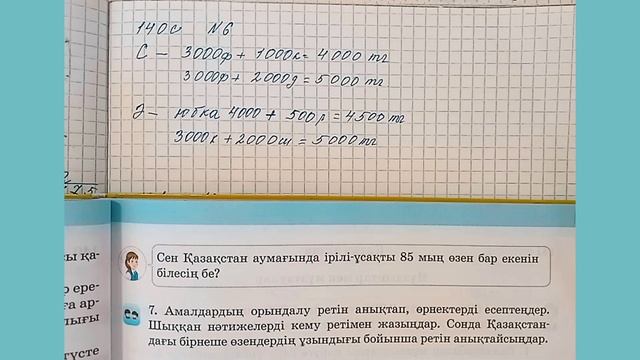 140с №6
С — 3000ф + 1000к = 4000 тг
3000ф + 2000д = 5000 тг
Э — юбка 4000 + 500р = 4500 тг
3000к + 2000ш = 5000 тг
Сен Қазақстан аумағында ірілі-ұсақты 85 мың өзен бар екенін
білесің бе?
7. Амалдардың орындалу ретін анықтап, өрнектерді есептеңдер.
Шыққан нәтижелерді кему ретімен жазыңдар. Сонда Қазақстан-
дағы бірнеше өзендердің ұзындығы бойынша ретін анықтайсыңдар.